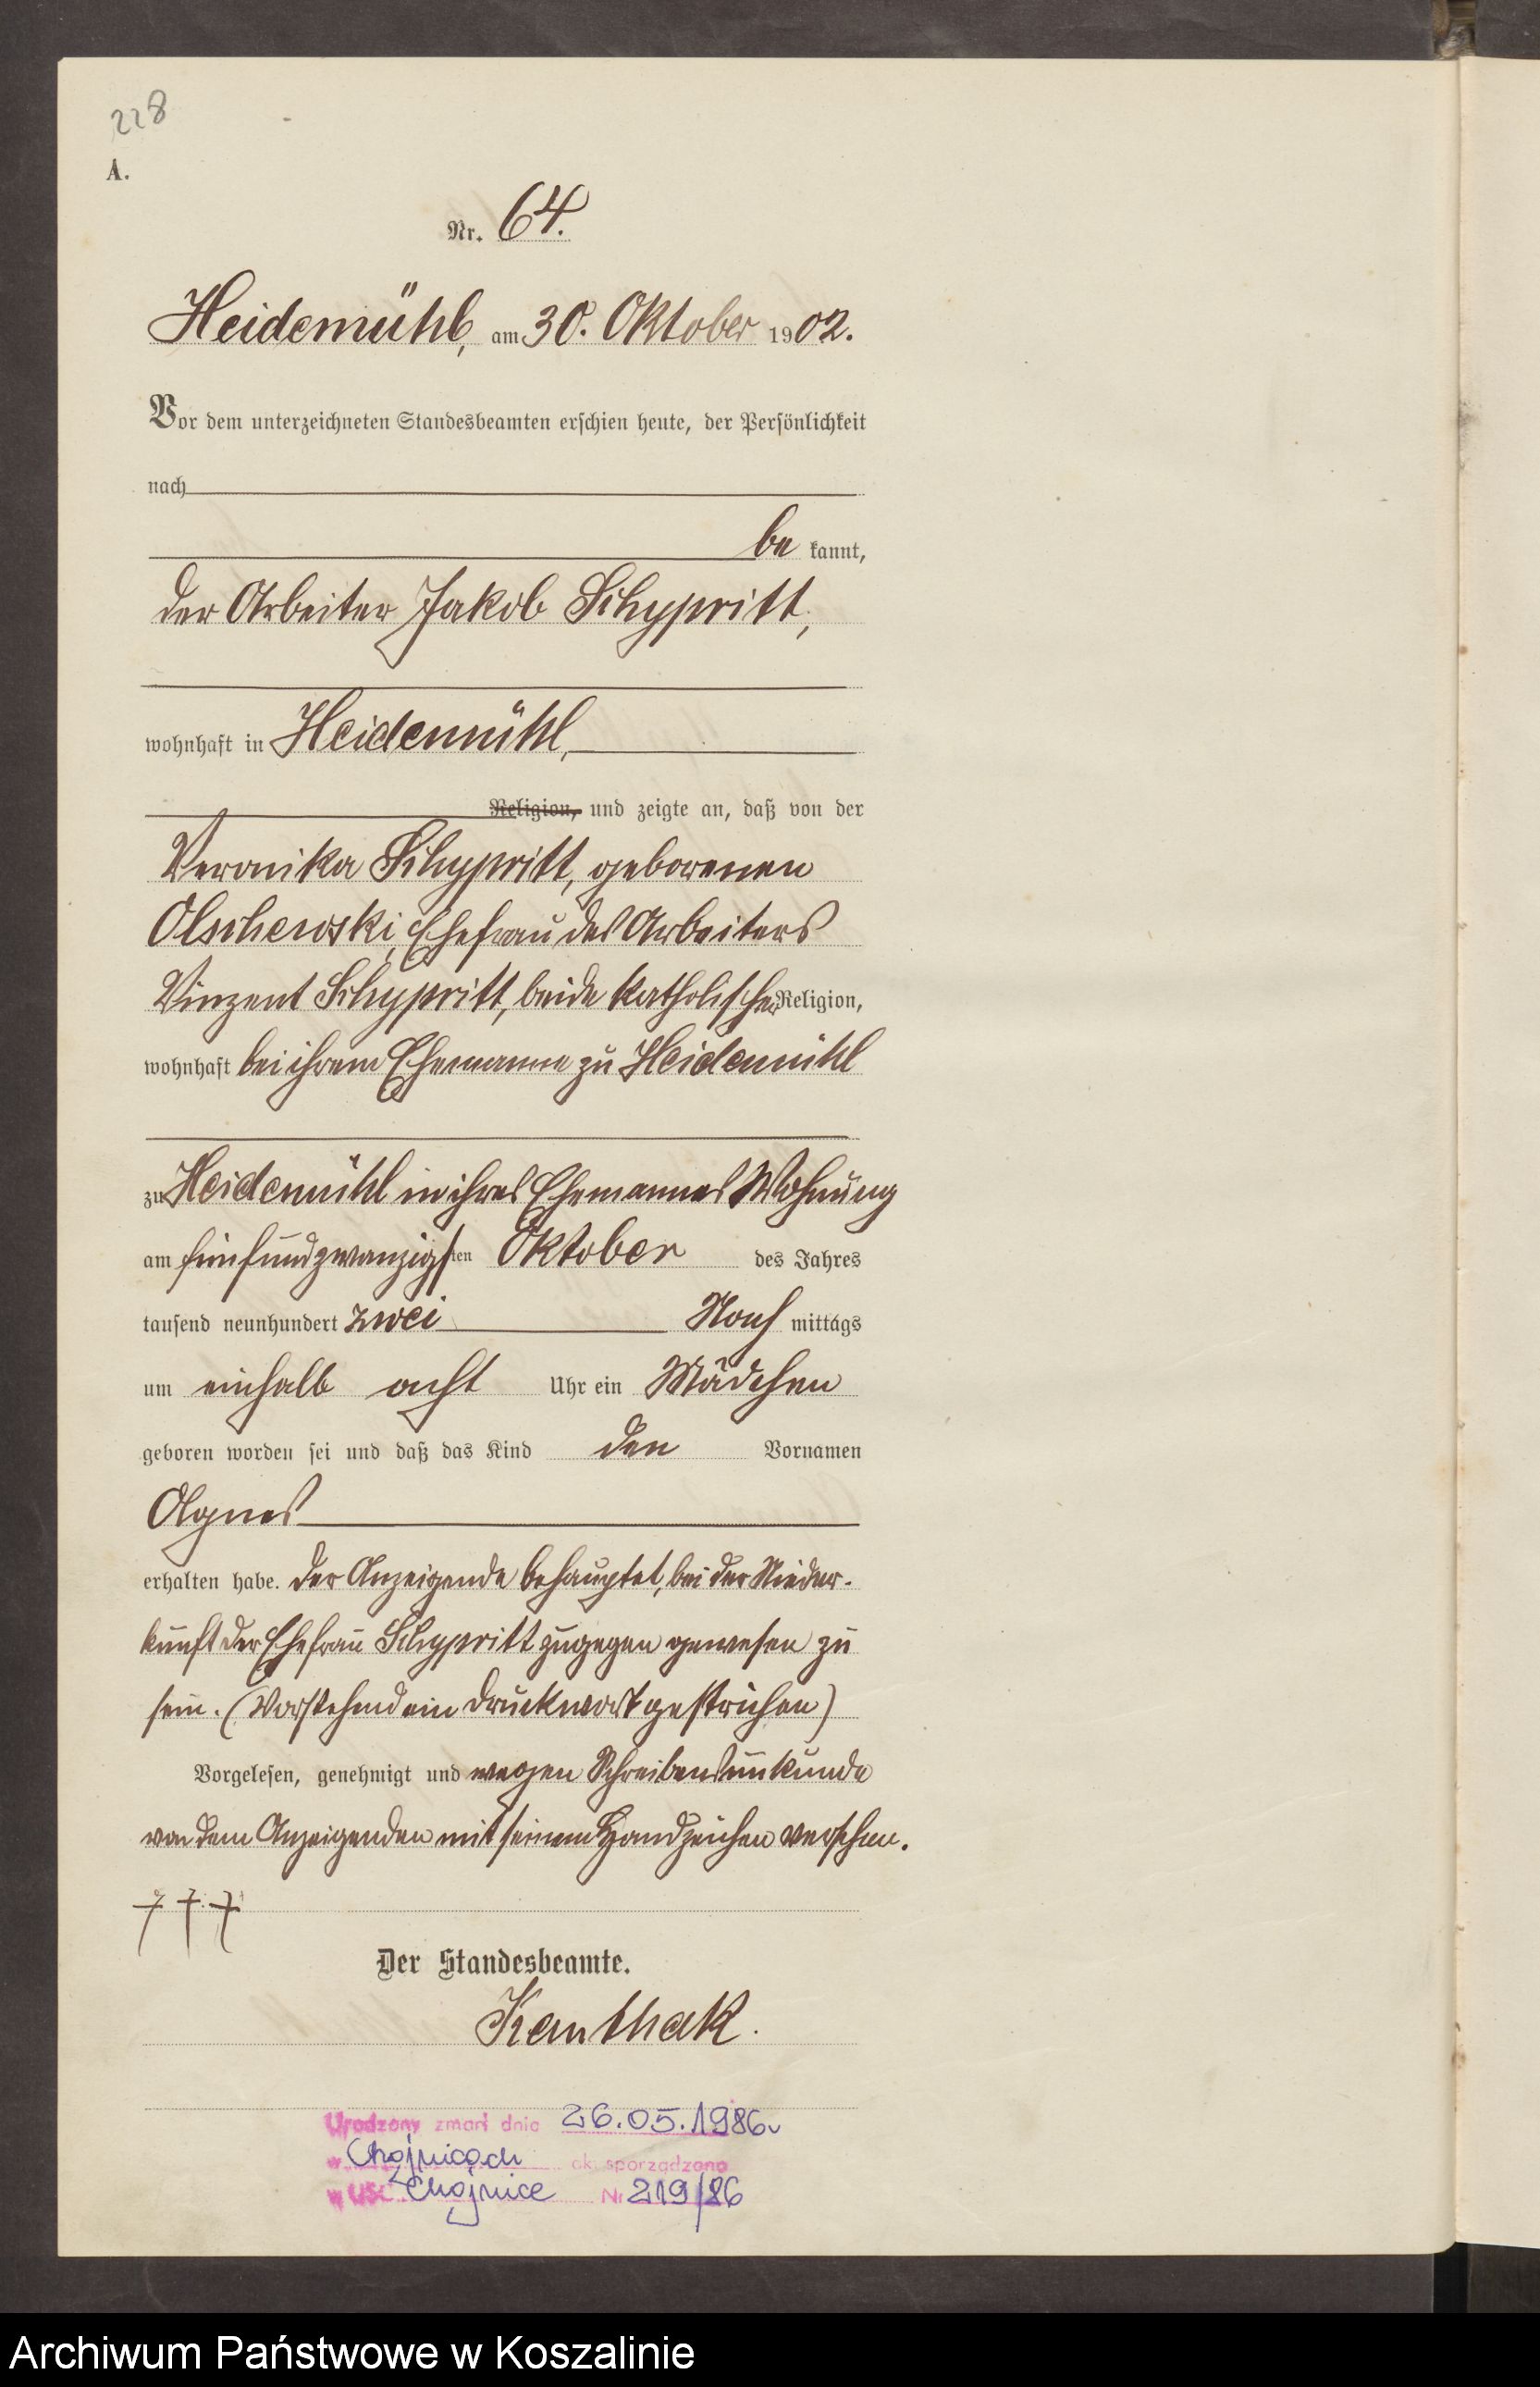 228
A.
Nr. 64.
Heidemühl, am 30. Oktober 1902.
Vor dem unterzeichneten Standesbeamten erschien heute, der Persönlichkeit
nach
be kannt,
der Arbeiter Jakob Schypritt,
wohnhaft in Heidemühl,
Religion, und zeigte an, daß von der
Veronika Schypritt, geborenen
Olschewski, Ehefrau des Arbeiters
Vinzent Schypritt, beide katholischer Religion,
wohnhaft bei ihrem Ehemanne zu Heidemühl
zu Heidemühl in ihres Ehemannes Wohnung
am fünfundzwanzigsten Oktober des Jahres
tausend neunhundert zwei Nach mittags
um einhalb acht Uhr ein Mädchen
geboren worden sei und daß das Kind den Vornamen
Agnes
erhalten habe. Der Anzeigende behauptet, bei der Nieder-
kunft der Ehefrau Schypritt zugegen gewesen zu
sein. (Vorstehend ein Druckwort gestrichen)
Vorgelesen, genehmigt und wegen Schreibensunkunde
von dem Anzeigenden mit seinem Handzeichen versehen.
+++
Der Standesbeamte.
Kanthak.
Urodzony zmarł dnia 26.05.1986r
w Chojnicach akt sporządzono
w USC Chojnice Nr 219/86
Archiwum Państwowe w Koszalinie